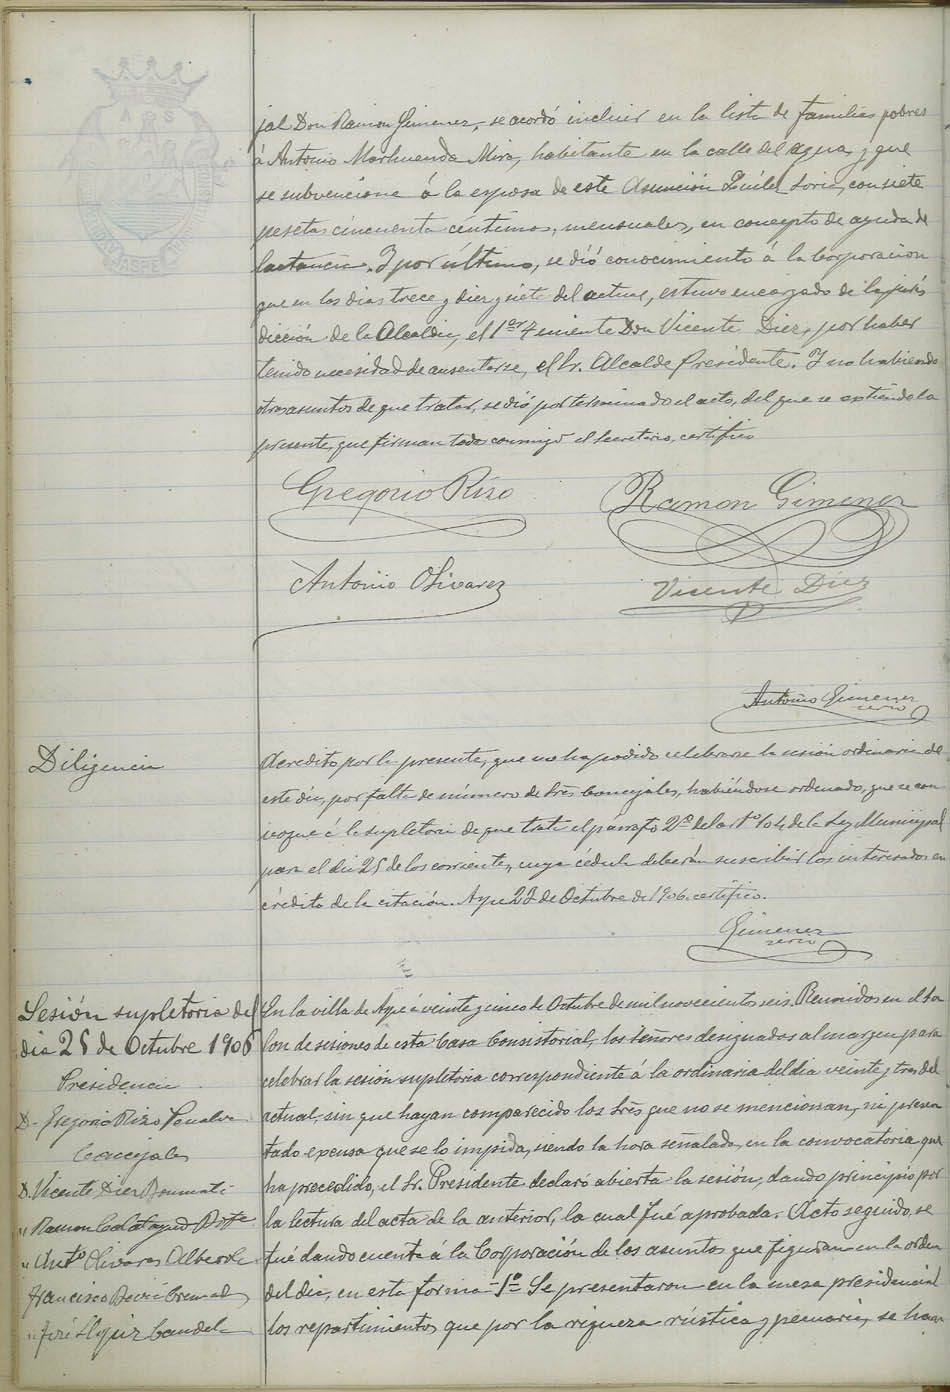 jal Don Ramon Gimenez, se acordó incluir en la lista de familias pobres
á Antonio Marhuenda Mira, habitante en la calle del agua, y que
se subvencione á la esposa de este Asunción Soria, con siete
pesetas cincuenta céntimos, mensuales, en concepto de ayuda de
lactancia. Y por último, se dió conocimiento á la Corporación
que en los dias trece y diez y siete del actual, estuvo encargado de la juris
dicción de la Alcaldia, el 1er Teniente Don Vicente Diez, por haber
tenido necesidad de ausentarse, el Sr. Alcalde Presidente. Y no habiendo
otros asuntos de que tratar, se dió por terminado el acto, del que se extiende la
presente, que firman todos conmigo el Secretario, certifico
Gregorio Rizo Ramon Gimenez
Antonio Olivarez Vicente Diez
Antonio Gimenez
serio
Diligencia
Acredito por la presente, que no ha podido celebrarse la sesión ordinaria de
este dia, por falta de número de Srs Concejales, habiéndose ordenado, que se con
voque á la supletoria de que trata el párrafo 2º del artº 104 de la Ley Municipal
para el dia 25 de los corrientes, cuya cédula deberán suscribir los interesados en
crédito de la citación. Aspe 23 de Octubre de 1906, certifico.
Gimenez
serio
Sesión supletoria del
dia 25 de Octubre 1906
Presidencia
D. Gregorio Rizo
Concejales
D. Vicente Diez
" Ramon Calatayud
" Antº Olivares Alberola
Francisco
" José Candela
En la villa de Aspe á veinte y cinco de Octubre de mil novecientos seis. Reunidos en el Sa
lon de sesiones de esta Casa Consistorial, los señores designados al margen para
celebrar la sesión supletoria correspondiente á la ordinaria del dia veinte y tres del
actual, sin que hayan comparecido los Srs que no se mencionan, ni presen
tado excusa que se lo impida, siendo la hora señalada en la convocatoria que
ha precedido, el Sr. Presidente declaró abierta la sesión, dando principio por
la lectura del acta de la anterior, la cual fué aprobada. Acto seguido, se
fué dando cuenta á la Corporación de los asuntos que figuran en la orden
del dia, en esta forma - 1º Se presentaron en la mesa presidencial
los repartimientos que por la riqueza rústica y pecuaria, se han